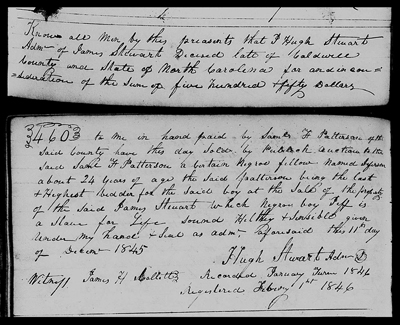 Know all Men by this preasents that I Hugh Stuart
Admr of James Stewart Deceased late of Caldwell
County and State of North Carolina for and in con=
=sideration of the Sum of five hundred & fifty Dollars
34603 to me in hand paid by Saml F Patterson of the
Said County have this day Sold by Publick auction to the
Said Saml F Patterson a Certain Negroe fellow Named
about 24 years of age the Said Patterson being the last
& Highest bidder for the Said boy at the Sale of the property
of the Said James Stewart which Negroe boy Jeff is
a Slave for Life Sound Helthey & Sensible given
under my hand & Seal as admr aforesaid this 11th day
of Decem 1845
Hugh Stwart Adm
Witness James H
Recorded January Term 1846
Registered Febuary 1st 1846